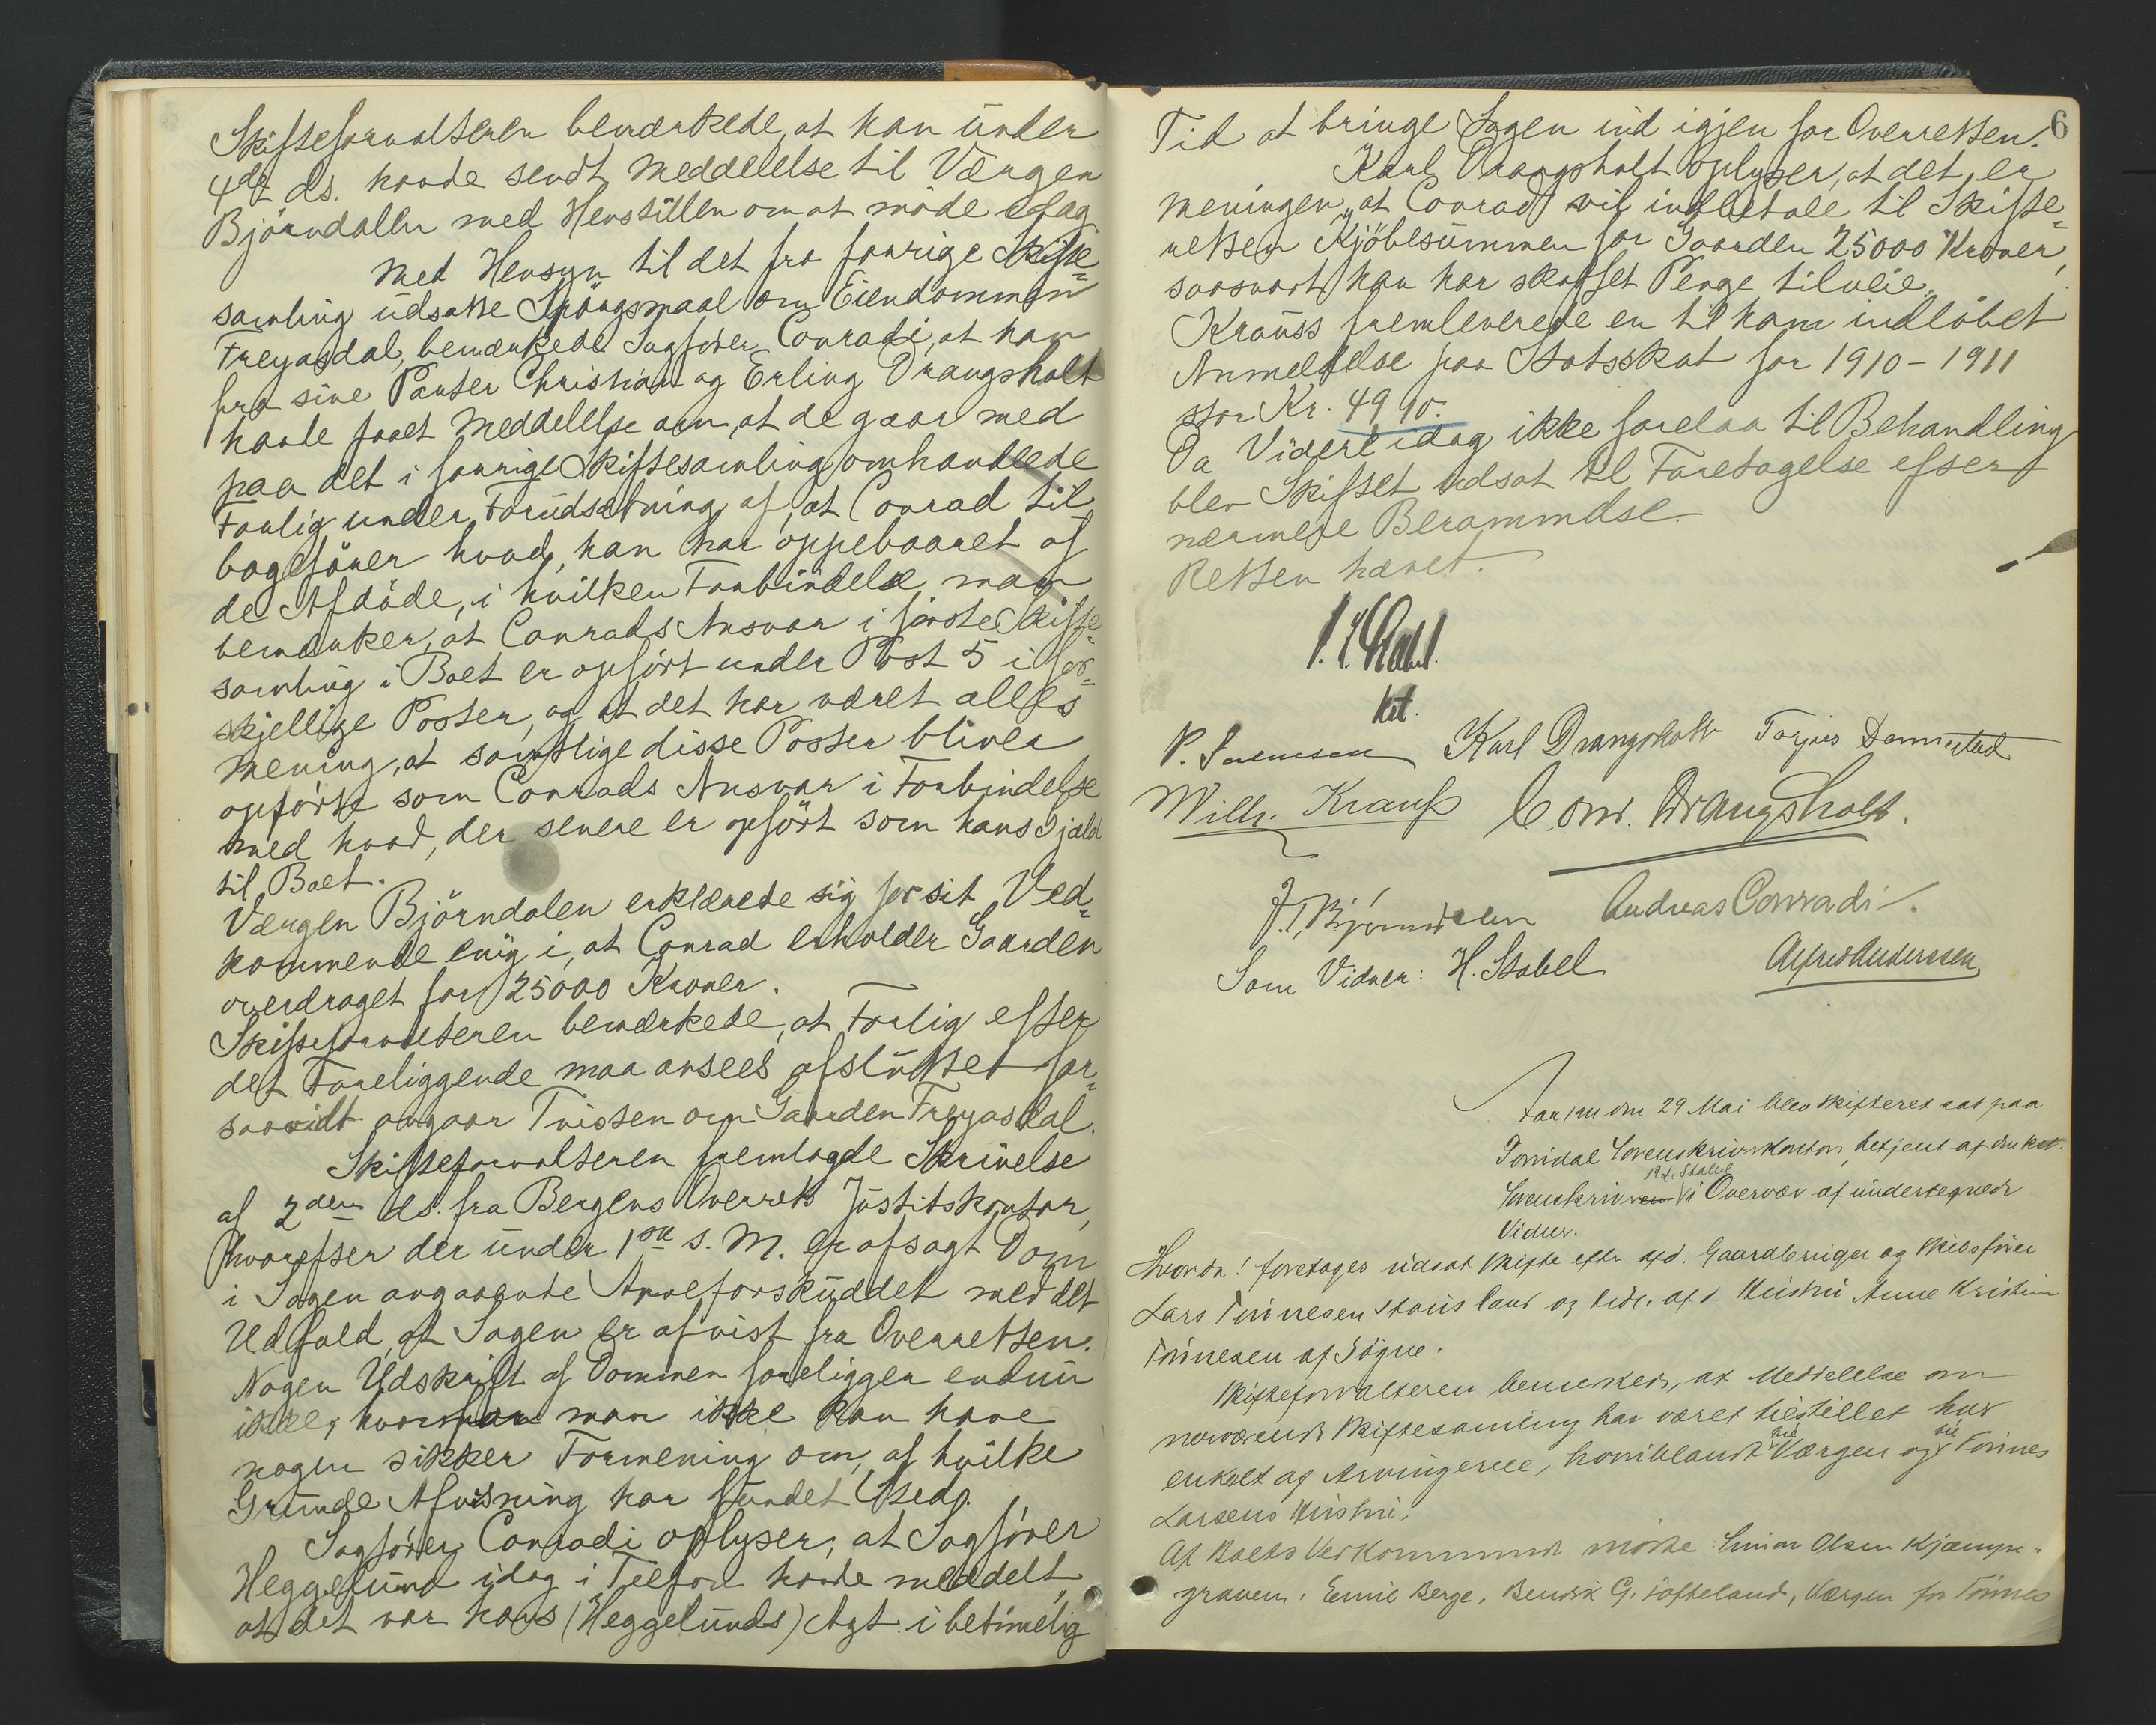 Skifteforvalteren bemærkede, at han under
4de ds. havde sendt Meddelelse til Værgen
Björndalen med Henstillen om at møde idag
Med Hensyn til det fra forrige Skifte-
samling udsatte Spörgsmaal om Eiendommen
Freyasdal, bemærkede Sagförer Conradi, at han
fra sine Parter Christian og Erling Drangsholt
havde faaet Meddelelse om, at de gaar med
paa det i forrige Skiftesamling omhandlede
Forlig under Forudsætning af, at Conrad til
bageförer hvad han har oppebaaret af
de Afdöde, i hvilken Forbindelse man
bemærker, at Conrads Ansvar i förste Skifte-
samling i Boet er opfört under Post 5 i for-
skjellige Poster, og at det har været alles
Mening, at samtlige disse Poster bliver
opförte som Conrads Ansvar i Forbindelse
med hvad, der senere er opfört som hans Gjæld
til Boet.
Værgen Björndalen erklærede sig for sit Ved-
kommende enig i, at Conrad erholder Gaarden
overdraget for 25000 Kroner.
Skifteforvalteren bemærkede, at Forlig efter
det Foreliggende maa ansees afsluttet for-
saavidt angaar Tvisten om Gaarden Freyasdal.
Skifteforvalteren fremlagde Skrivelse
af 2den ds. fra Bergens Overrets Justitskontor,
hvorefter der under 1ste s. M. er afsagt Dom
i Sagen angaaende Arveforskuddet med det
Udfald, at Sagen er afvist fra Overretten.
Nogen Udskrift af Dommen foreligger endnu
ikke, hvorfor man ikke kan have
nogen sikker Formening om, af hvilke
Grunde Afvisning har fundet Sted.
Sagförer Conradi oplyser, at Sagförer
Heggelund idag i Telefon havde meddelt,
at det var hans (Heggelunds) Agt i betimelig
6
Tid at bringe Sagen ind igjen for Overretten.
Karl Drangsholt oplyser, at det er
Meningen, at Conrad vil indbetale til Skifte-
retten Kjöbesummen for Gaarden 25000 Kroner,
saasnart han har skaffet Penge tilveie.
Krauss fremleverede en til ham indlöbet
Anmeldelse paa Statsskat for 1910-1911
stor Kr. 49 90.
Da Videre idag ikke forelaa til Behandling
blev Skiftet udsat til Foretagelse efter
nærmere Berammelse.
Retten hævet.
kst.
Karl Drangsholt Torjus Dannestad
Wilh. Krauss Conr. Drangsholt.
J. T. Björndalen Andreas Conradi.
Som Vidner: H. Stabel Alfred Anderssen
den 29 Mai blev Skifteret sat paa
Torridal Sorenskriverkontor, betjent af den kst.
Sorenskriver i Overvær af undertegnede
Vidner.
Hvorda! foretages udsat Skifte efter afd. Gaardbruger og Skibsförer
Lars Tönnesen Stausland og tidl. afd. Hustru Anne Kristine
Tönnesen af Sögne.
Skifteforvalteren bemerkede, at Meddelelse om
nerværende Skiftesamling har været tilstillet hver
enkelt af Arvingerne, hvoriblandt til Værgen og til Tönnes
Larsens Hustru.
Af Boets Vedkommende mödte Gunnar Olsen Kjæmpe-
graven, Emil Berge, Bendik G. Töfteland, Værgen for Tönnes